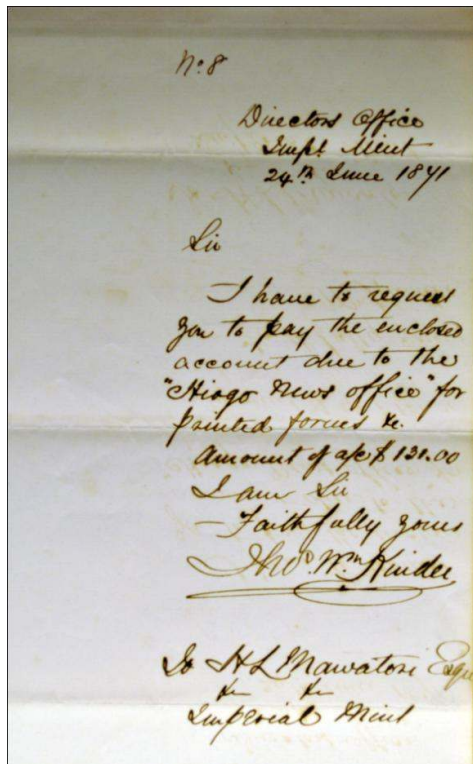 No. 8
Directors Office
Impl. Mint
24th June 1871
Sir
I have to request
you to pay the enclosed
account due to the
"Hiogo News office" for
printed forms &c.
Amount of a/c $ 131.00
I am Sir
Faithfully yours
Thos. Wm Kinder
To H L Mawatori Esqre
&c &c
Imperial Mint